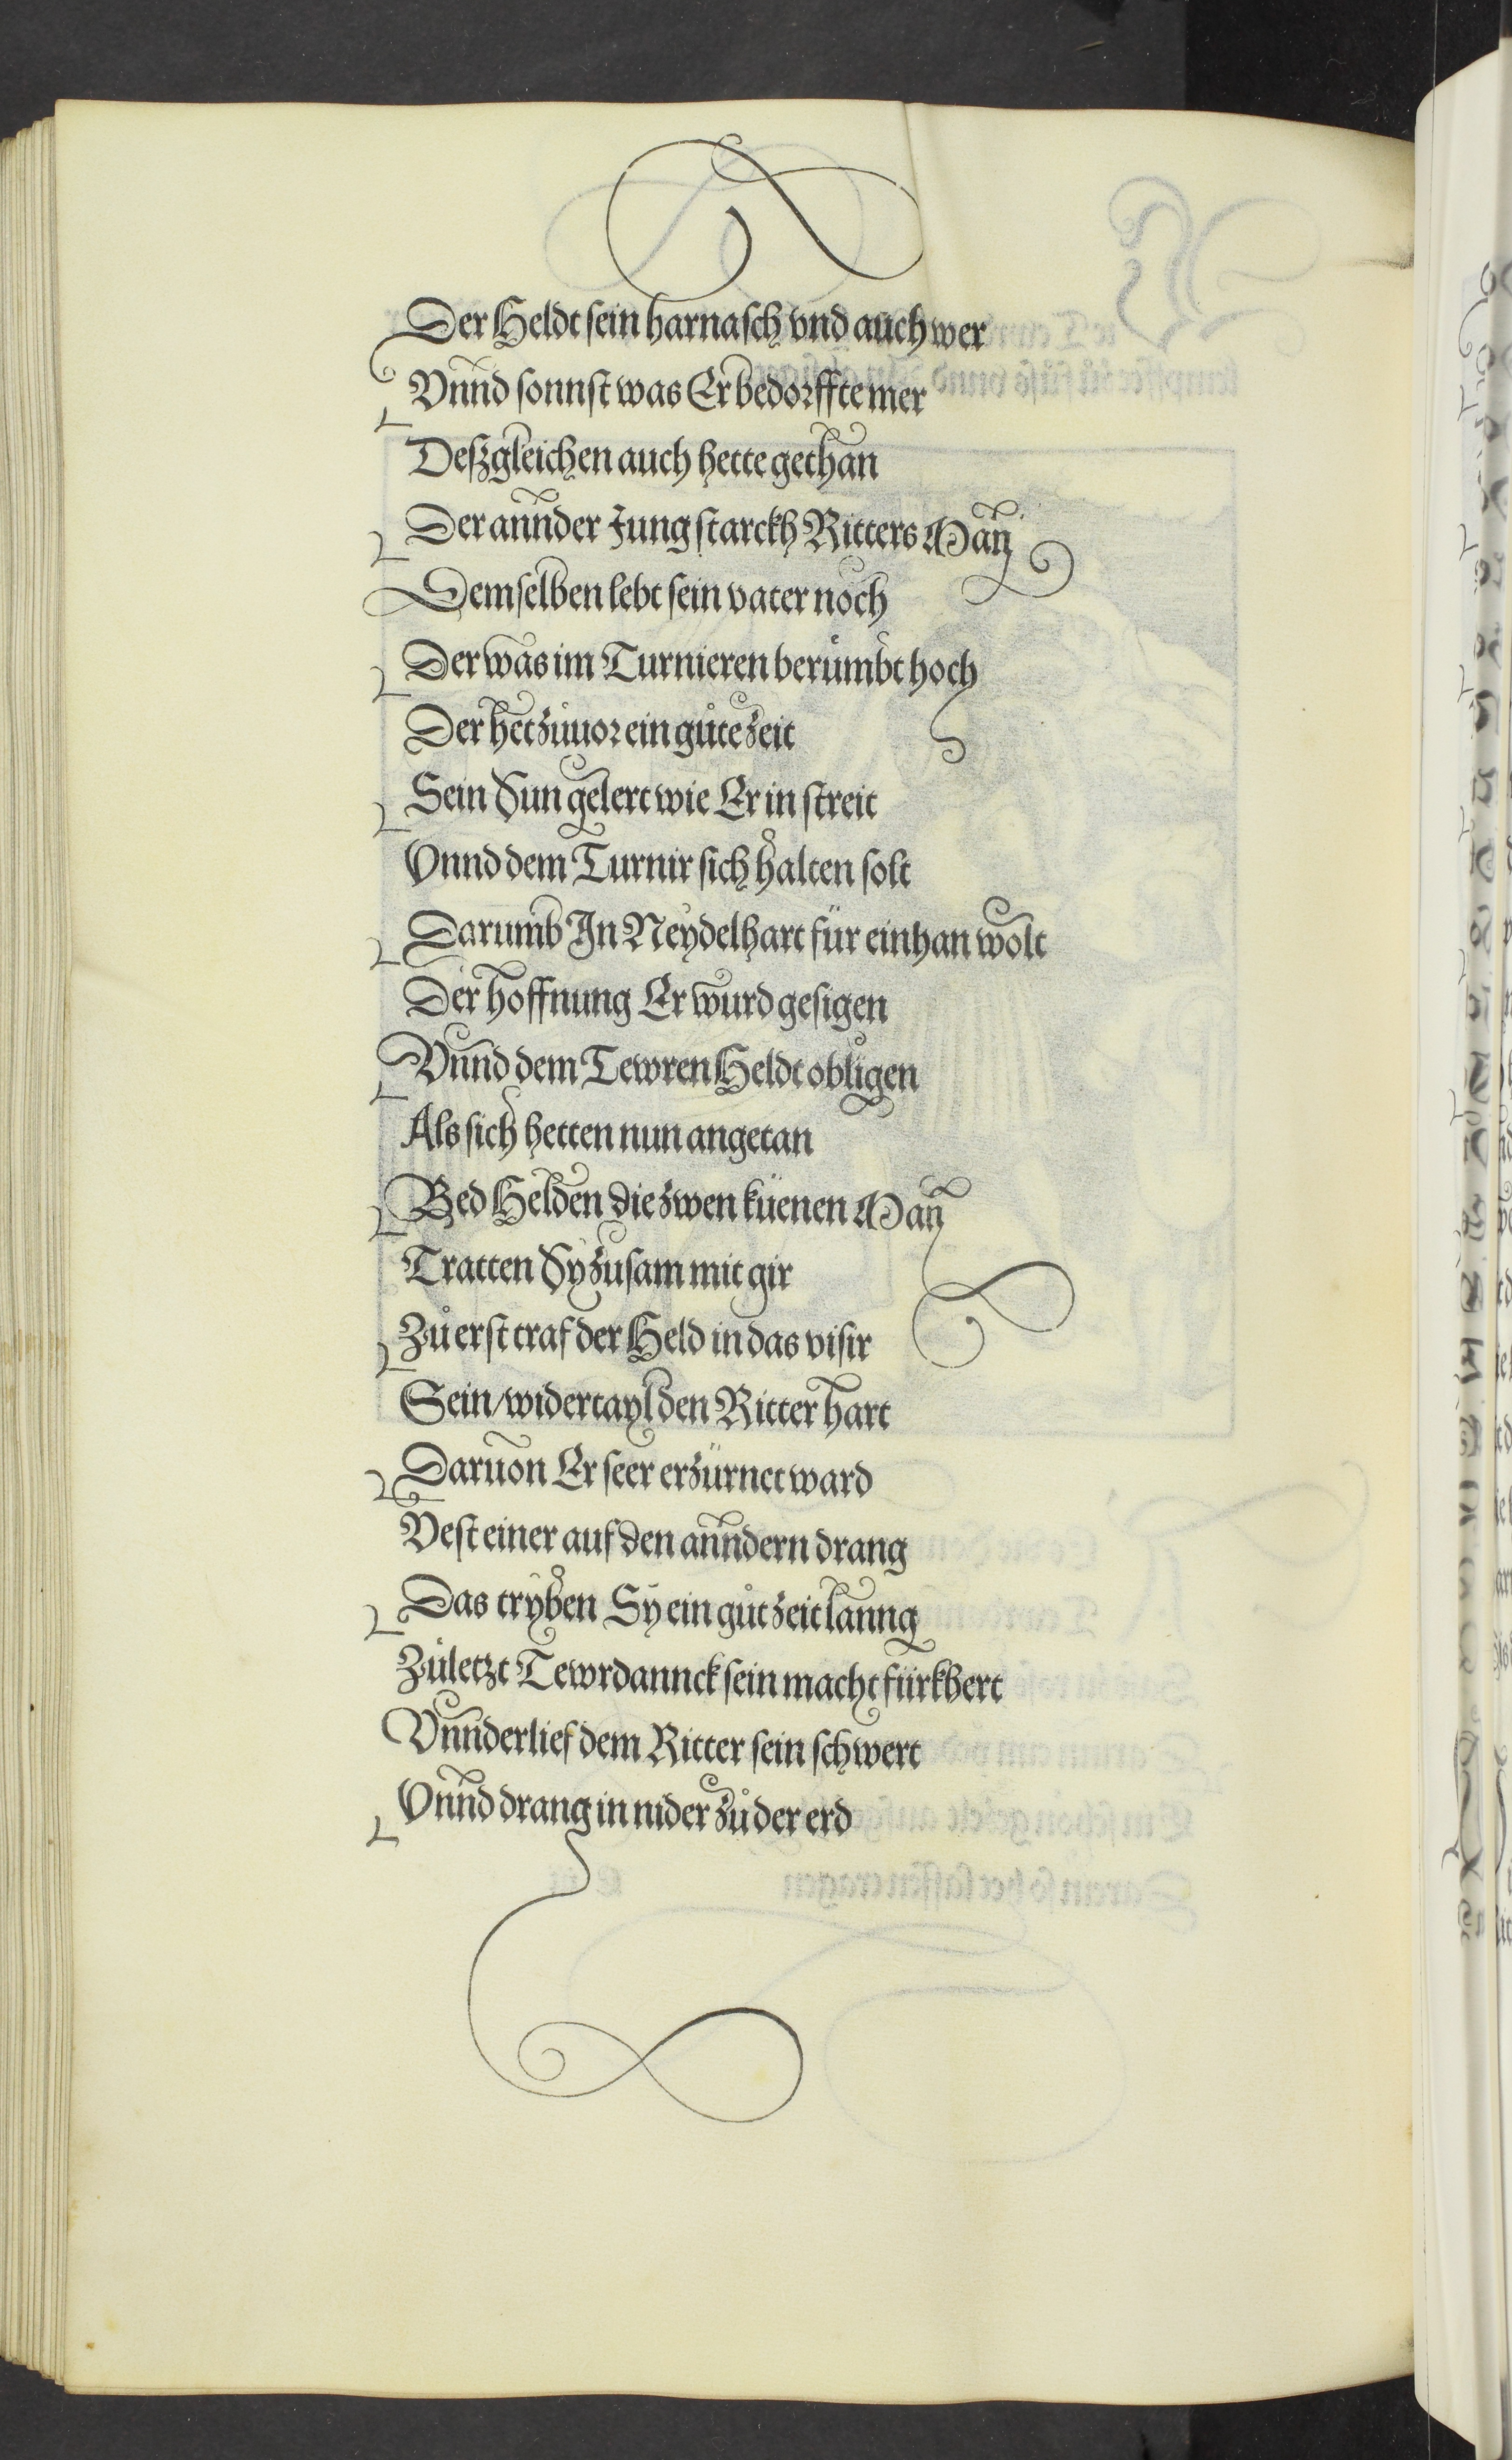 Der Heldt sein harnasch vnd auch wer
Vnnd sonnst was Er bedorffte mer
Deßgleichen auch hette gethan
Der annder Jung starckh Ritters Man
Demselben lebt sein vater noch
Der was im Turnieren berümbt hoch
Der het zuuor ein gůte zeit
Sein Sun gelert wie Er in streit
Vnnd dem Turnir sich halten solt
Darumb In Neydelhart für ein han wolt
Der hoffnung Er wurd gesigen
Vnnd dem Tewren Heldt obligen
Als sich hetten nun angetan
Bed Helden die zwen küenen Man
Tratten Sy zusam mit gir
Zů erst traf der Held in das visir
Sein/widertayl den Ritter hart
Daruon Er seer erzürnet ward
Vest einer auf den anndern drang
Das tryben Sy ein gůt zeit lanng
Zůletzt Tewrdannck sein macht fürkhert
Vnnderlief dem Ritter sein schwert
Vnnd drang in nider zů der erd